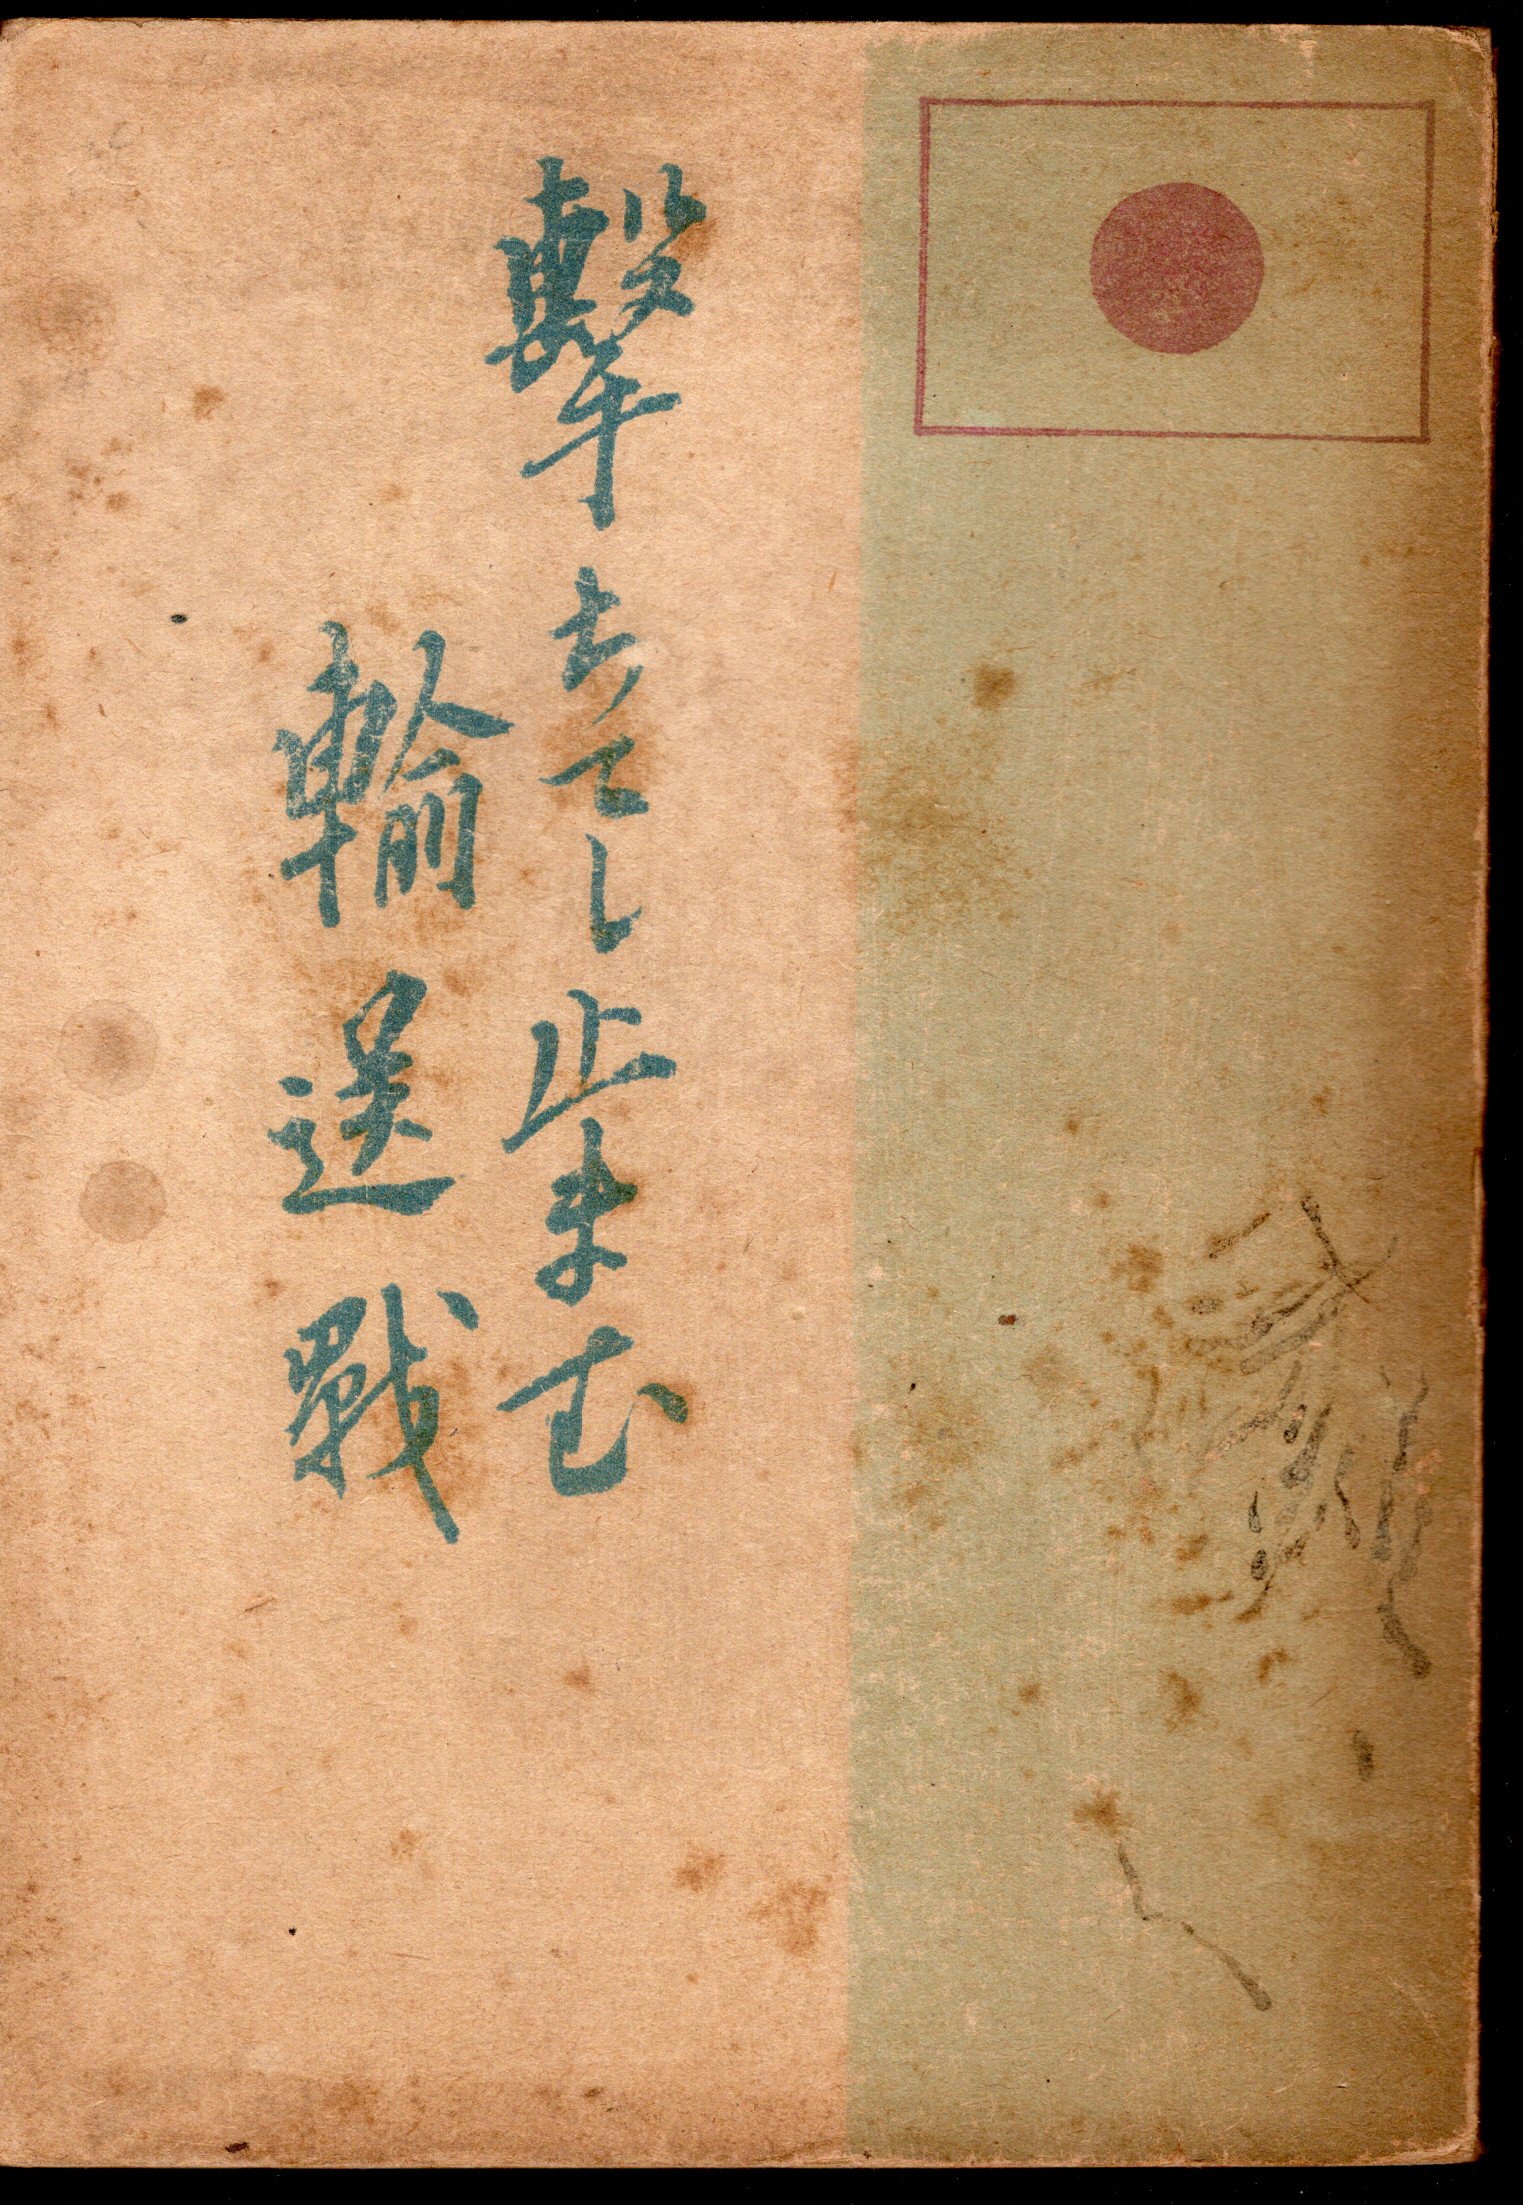 擊ちてし止まむ
輸送戰